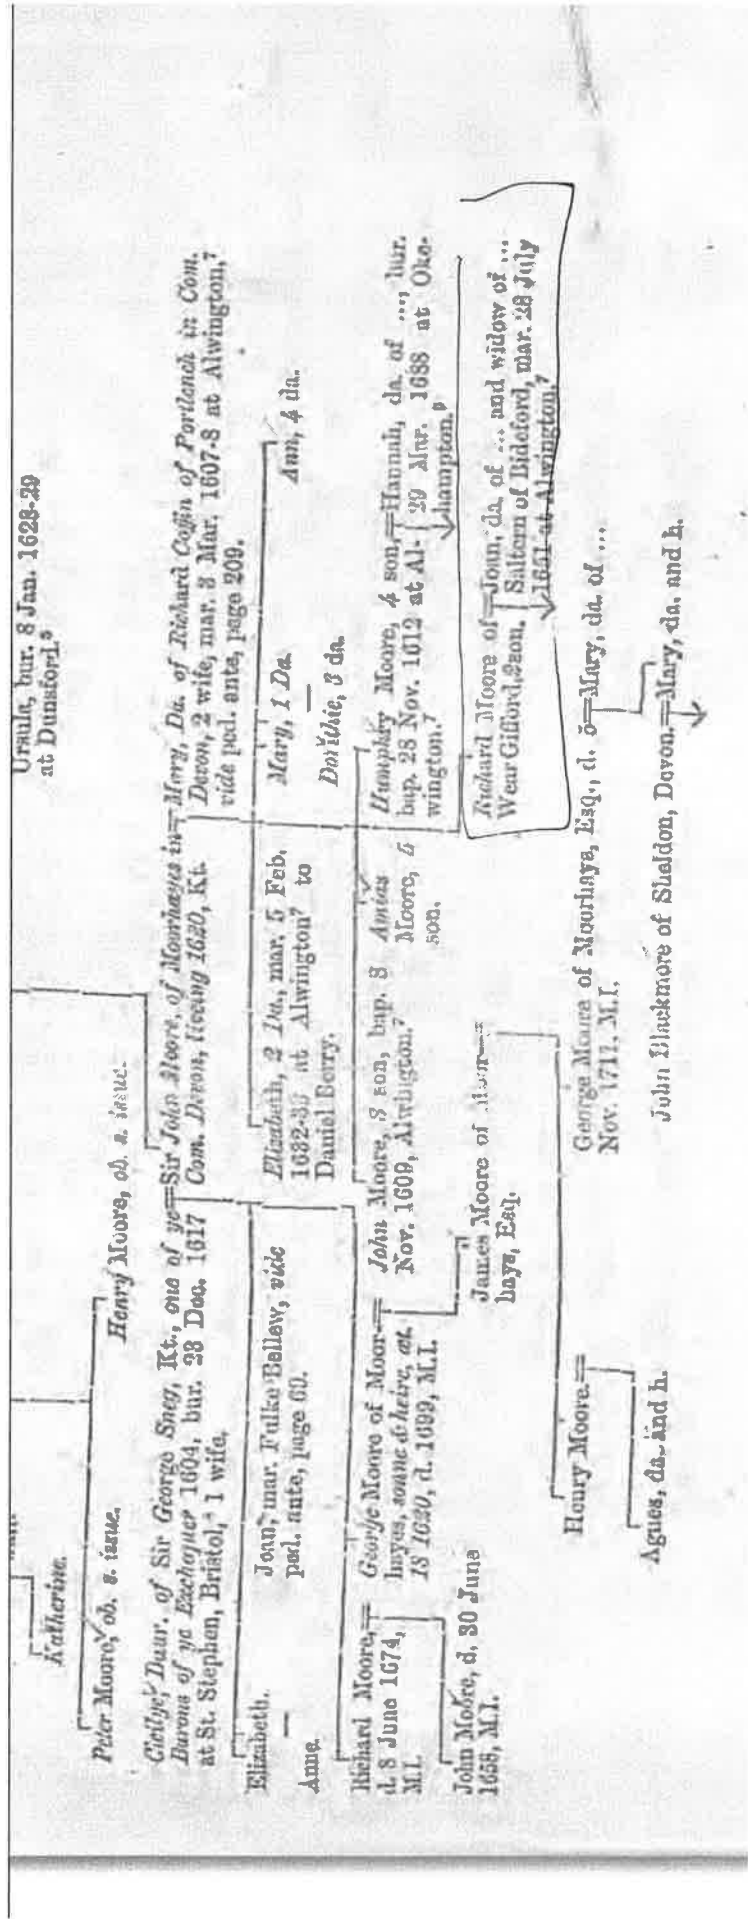 Ursula, bur. 8 Jan. 1628-29
at Dunsford.⁵
Katherine.
Peter Moore, ob. s. issue.
Henry Moore, ob. s. issue.
Cicilye, Daur. of Sir George Sneg, Kt., one of ye
Barons of ye Exchequer 1604, bur. 23 Dec. 1617
at St. Stephen, Bristol, 1 wife.
=Sir John Moore, of Moorhayes in
Com. Devon, living 1620, Kt.
=Mary, Da. of Richard Coffin of Portlench in Com.
Devon, 2 wife, mar. 3 Mar. 1607-8 at Alwington,⁷
vide ped. ante, page 209.
Elizabeth.
—
Anne.
Joan, mar. Fulke Bellew, vide
ped. ante, page 60.
Elizabeth, 2 Da., mar. 5 Feb.
1632-33 at Alwington⁷ to
Daniel Berry.
Mary, 1 Da.
—
Dorithie, 3 da.
Ann, 4 da.
Richard Moore,=
d. 8 June 1674,
M.I.
George Moore of Moor=
hayes, sonne & heire, æt.
18 1620, d. 1699, M.I.
John Moore, 3 son, bap. 8
Nov. 1609, Alwington.⁷
Amias
Moore, 5
son.
Humphry Moore, 4 son,=Hannah, da. of ..., bur.
bap. 28 Nov. 1612 at Al-
wington.⁷
29 Mar. 1688 at Oke-
hampton.
John Moore, d. 30 June
1658, M.I.
James Moore of Moor=
hays, Esq.
Richard Moore of=Joan, da. of ... and widow of ...
Wear Gifford, 2 son.
Saltern of Bideford, mar. 28 July
1651 at Alwington.⁷
Henry Moore.=
George Moore of Moorhays, Esq., d. 5=Mary, da. of ...
Nov. 1711, M.I.
Agnes, da. and h.
John Blackmore of Sheldon, Devon.=Mary, da. and h.